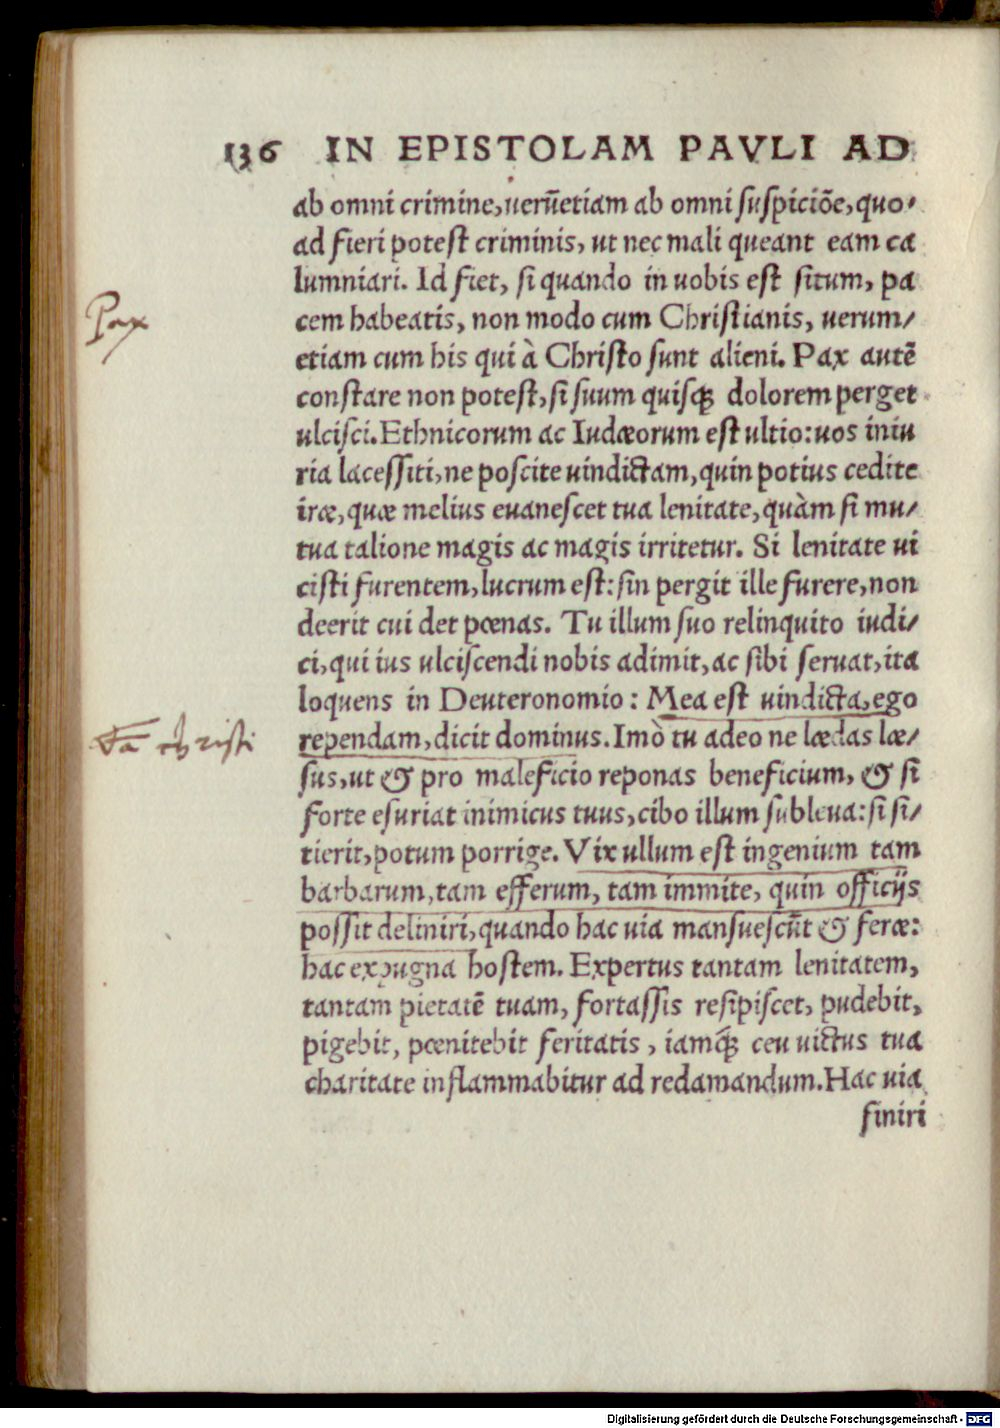 136 IN EPISTOLAM PAVLI AD
ab omni crimine, uerũetiam ab omni suspiciõe, quo-
ad fieri potest criminis, ut nec mali queant eam ca
lumniari. Id fiet, si quando in uobis est situm, pa
Pax
cem habeatis, non modo cum Christianis, uerum/
etiam cum his qui à Christo sunt alieni. Pax autẽ
constare non potest, si suum quisq; dolorem perget
ulcisci. Ethnicorum ac Iudæorum est ultio: uos iniu
ria lacessiti, ne poscite uindictam, quin potius cedite
iræ, quæ melius euanescet tua lenitate, quàm si mu/
tua talione magis ac magis irritetur. Si lenitate ui
cisti furentem, lucrum est: sin pergit ille furere, non
deerit cui det pœnas. Tu illum suo relinquito iudi/
ci, qui ius ulciscendi nobis adimit, ac sibi seruat, ita
loquens in Deuteronomio: Mea est uindicta, ego
christi
rependam, dicit dominus. Imò tu adeo ne lædas læ/
sus, ut & pro maleficio reponas beneficium, & si
forte esuriat inimicus tuus, cibo illum subleua: si si/
tierit, potum porrige. Vix ullum est ingenium tam
barbarum, tam efferum, tam immite, quin officijs
possit deliniri, quando hac uia mansuescũt & feræ:
hac expugna hostem. Expertus tantam lenitatem,
tantam pietatẽ tuam, fortassis resipiscet, pudebit,
pigebit, pœnitebit feritatis, iamq; ceu uictus tua
charitate inflammabitur ad redamandum. Hac uia
finiri
Digitalisierung gefördert durch die Deutsche Forschungsgemeinschaft - DFG